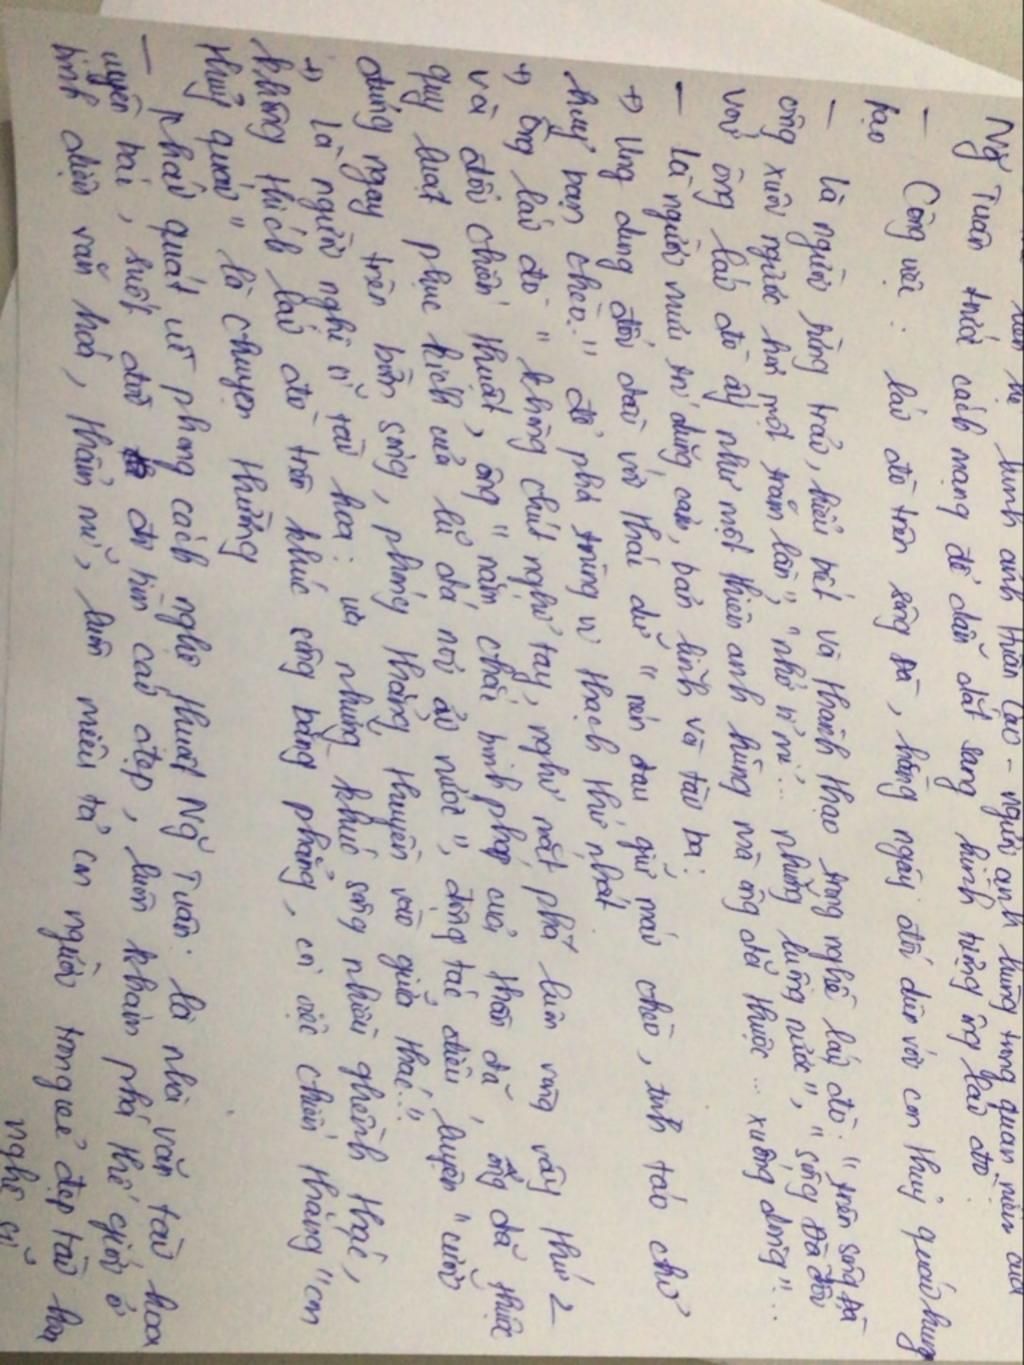 hình ảnh Huấn Cao - người anh hùng trong quan niệm của
Ng Tuân trước cách mạng để dẫn dắt sang hình tượng ông lái đò.
- Công việc: lái đò trên sông Đà, hằng ngày đối diện với con thuỷ quái hung
bạo
- Là người từng trải, hiểu biết và thành thạo trong nghề lái đò: "trên sông Đà
ông xuôi ngược hơn một trăm lần", "nhớ tỉ mỉ... những luồng nước", "sông Đà đối
với ông lái đò ấy như một thiên anh hùng mà ông đã thuộc... xuống dòng"...
- Là người mưu trí dũng cảm, bản lĩnh và tài ba:
+) Ung dung đối đầu với thác dữ "nén đau giữ mái chèo, tỉnh táo chỉ
huy bạn chèo.." để phá trùng vi thạch thứ nhất
+) Ông lái đò "không chút nghỉ tay, nghỉ mắt phá luôn vòng vây thứ 2
và đổi chiến thuật, ông "nắm chắc binh pháp của thần đá, ông đã thuộc
quy luật phục kích của lũ đá nơi ải nước", động tác điêu luyện "cưỡi
đúng ngay trên bờm sóng, phóng thẳng thuyền vào giữa thác.."
+) Là người nghệ sĩ tài hoa: ưa những khúc sông nhiều ghềnh thác,
không thích lái đò trên khúc sông bằng phẳng, coi việc chiến thắng "con
thuỷ quái" là chuyện thường
- Khái quát về phong cách nghệ thuật Ng Tuân: là nhà văn tài hoa
uyên bác, suốt đời đi tìm cái đẹp, luôn khám phá thế giới ở
bình diện văn hoá, thẩm mĩ, luôn miêu tả con người trong vẻ đẹp tài hoa
nghệ sĩ